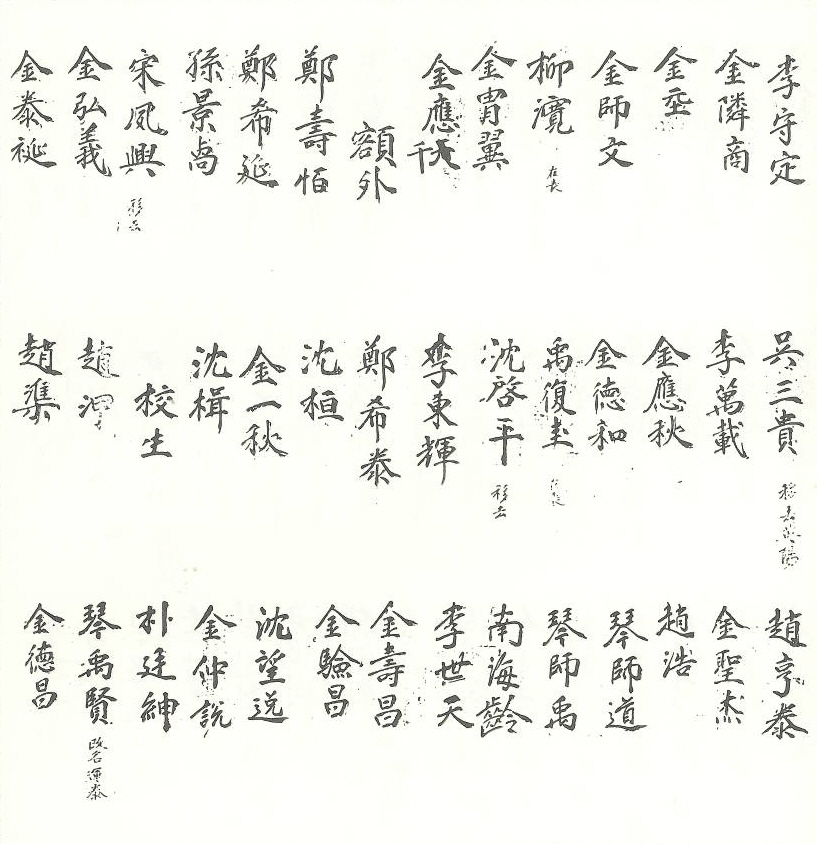 李守定
金隣商
金垂
金師文
柳濱 在喪
金胄翼
金應千秋
額外
鄭壽恒
鄭希延
孫景卨
宋鳳興 移去
金弘義
金泰祉
吳三貴 移去英陽
李萬載
金應秋
金德和
禹復圭
沈啓平 移去
李東輝
鄭希泰
沈桓
金一秋
沈楫
校生
趙潤
趙集
趙亨泰
金聖杰
趙浩
琴師道
琴師禹
南海齡
李世天
金壽昌
金驗昌
沈望逸
金仲說
朴廷紳
琴禹賢 改名運泰
金德昌